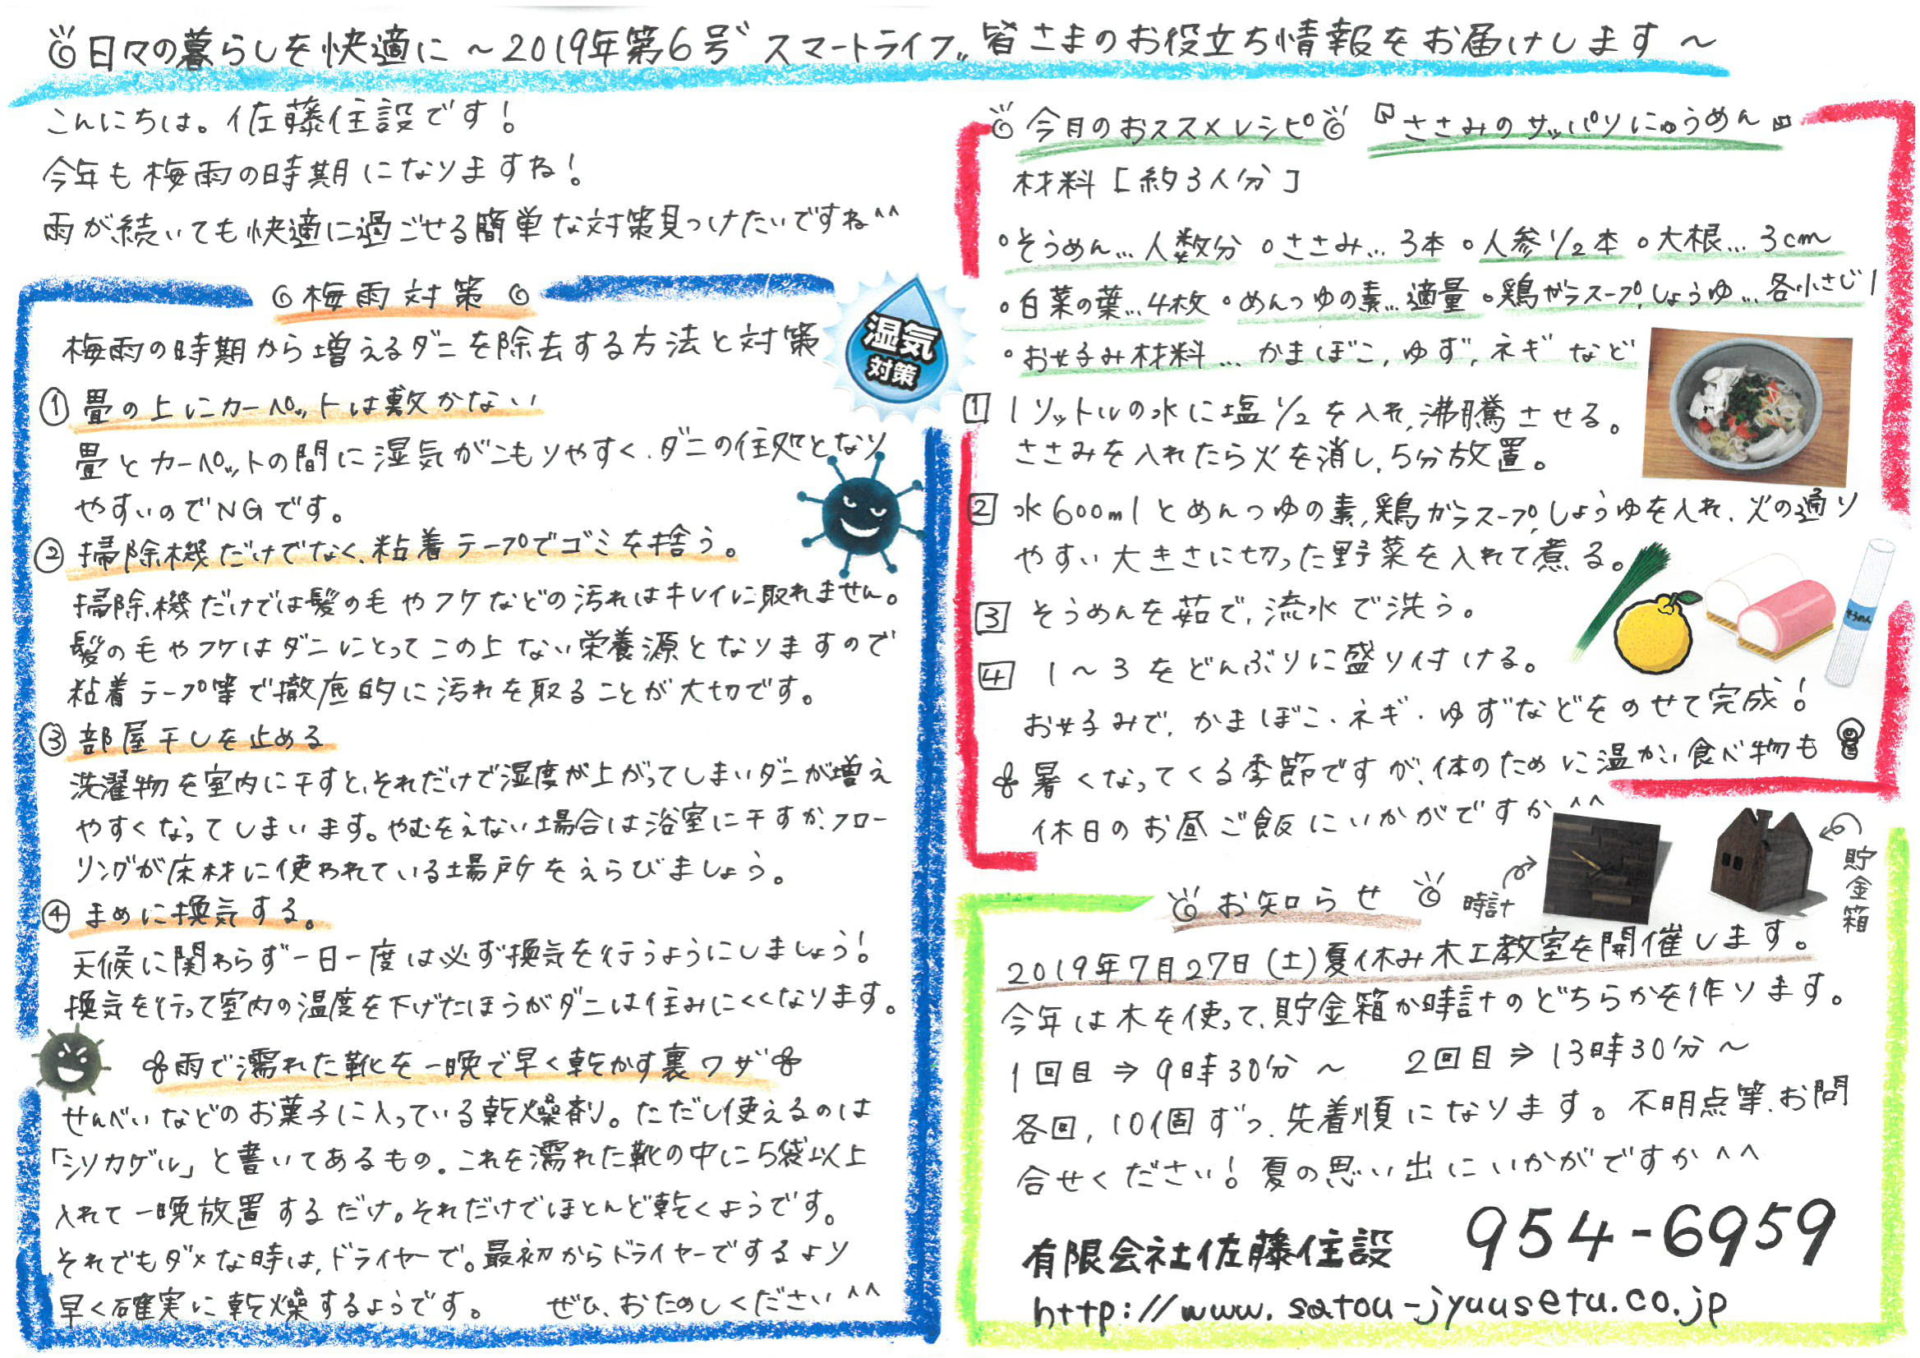 日々の暮らしを快適に ～2019年第6号"スマートライフ"皆さまのお役立ち情報をお届けします～
こんにちは。佐藤住設です！
今年も梅雨の時期になりますね！
雨が続いても快適に過ごせる簡単な対策見つけたいですね^^
梅雨対策
湿気
対策
梅雨の時期から増えるダニを除去する方法と対策
① 畳の上にカーペットは敷かない
畳とカーペットの間に湿気がこもりやすく、ダニの住処となり
やすいのでNGです。
② 掃除機だけでなく、粘着テープでゴミを捨う。
掃除機だけでは髪の毛やフケなどの汚れはキレイに取れません。
髪の毛やフケはダニにとってこの上ない栄養源となりますので
粘着テープ等で徹底的に汚れを取ることが大切です。
③ 部屋干しを止める
洗濯物を室内に干すと、それだけで湿度が上がってしまいダニが増え
やすくなってしまいます。やむをえない場合は浴室に干すか、フロー
リングが床材に使われている場所をえらびましょう。
④ まめに換気する。
天候に関わらず一日一度は必ず換気を行うようにしましょう！
換気を行って室内の温度を下げたほうがダニは住みにくくなります。
雨で濡れた靴を一晩で早く乾かす裏ワザ
せんべいなどのお菓子に入っている乾燥剤。ただし使えるのは
「シリカゲル」と書いてあるもの。これを濡れた靴の中に5袋以上
入れて一晩放置するだけ。それだけでほとんど乾くようです。
それでもダメな時は、ドライヤーで。最初からドライヤーでするより
早く確実に乾燥するようです。 ぜひ、おためしください^^
今月のおススメレシピ 『ささみのサッパリにゅうめん』
材料［約3人分］
・そうめん…人数分 ・ささみ…3本 ・人参1/2本 ・大根…3cm
・白菜の葉…4枚 ・めんつゆの素…適量 ・鶏がラスープ,しょうゆ…各小さじ1
・お好み材料…かまぼこ,ゆず,ネギなど
1 1リットルの水に塩1/2を入れ,沸騰させる。
ささみを入れたら火を消し,5分放置。
2 水600mlとめんつゆの素,鶏がラスープ,しょうゆを入れ、火の通り
やすい大きさに切った野菜を入れて煮る。
3 そうめんを茹で,流水で洗う。
そうめん
4 1～3をどんぶりに盛り付ける。
お好みで,かまぼこ・ネギ・ゆずなどをのせて完成！
暑くなってくる季節ですが、体のために温かい食べ物も
休日のお昼ご飯にいかがですか^^
お知らせ
時計
貯金箱
2019年7月27日(土)夏休み木工教室を開催します。
今年は木を使って、貯金箱か時計のどちらかを作ります。
1回目⇒9時30分～ 2回目⇒13時30分～
各回,10個ずつ、先着順になります。不明点等、お問
合せください！夏の思い出にいかがですか^^
有限会社佐藤住設 954-6959
http://www.satou-jyuusetu.co.jp